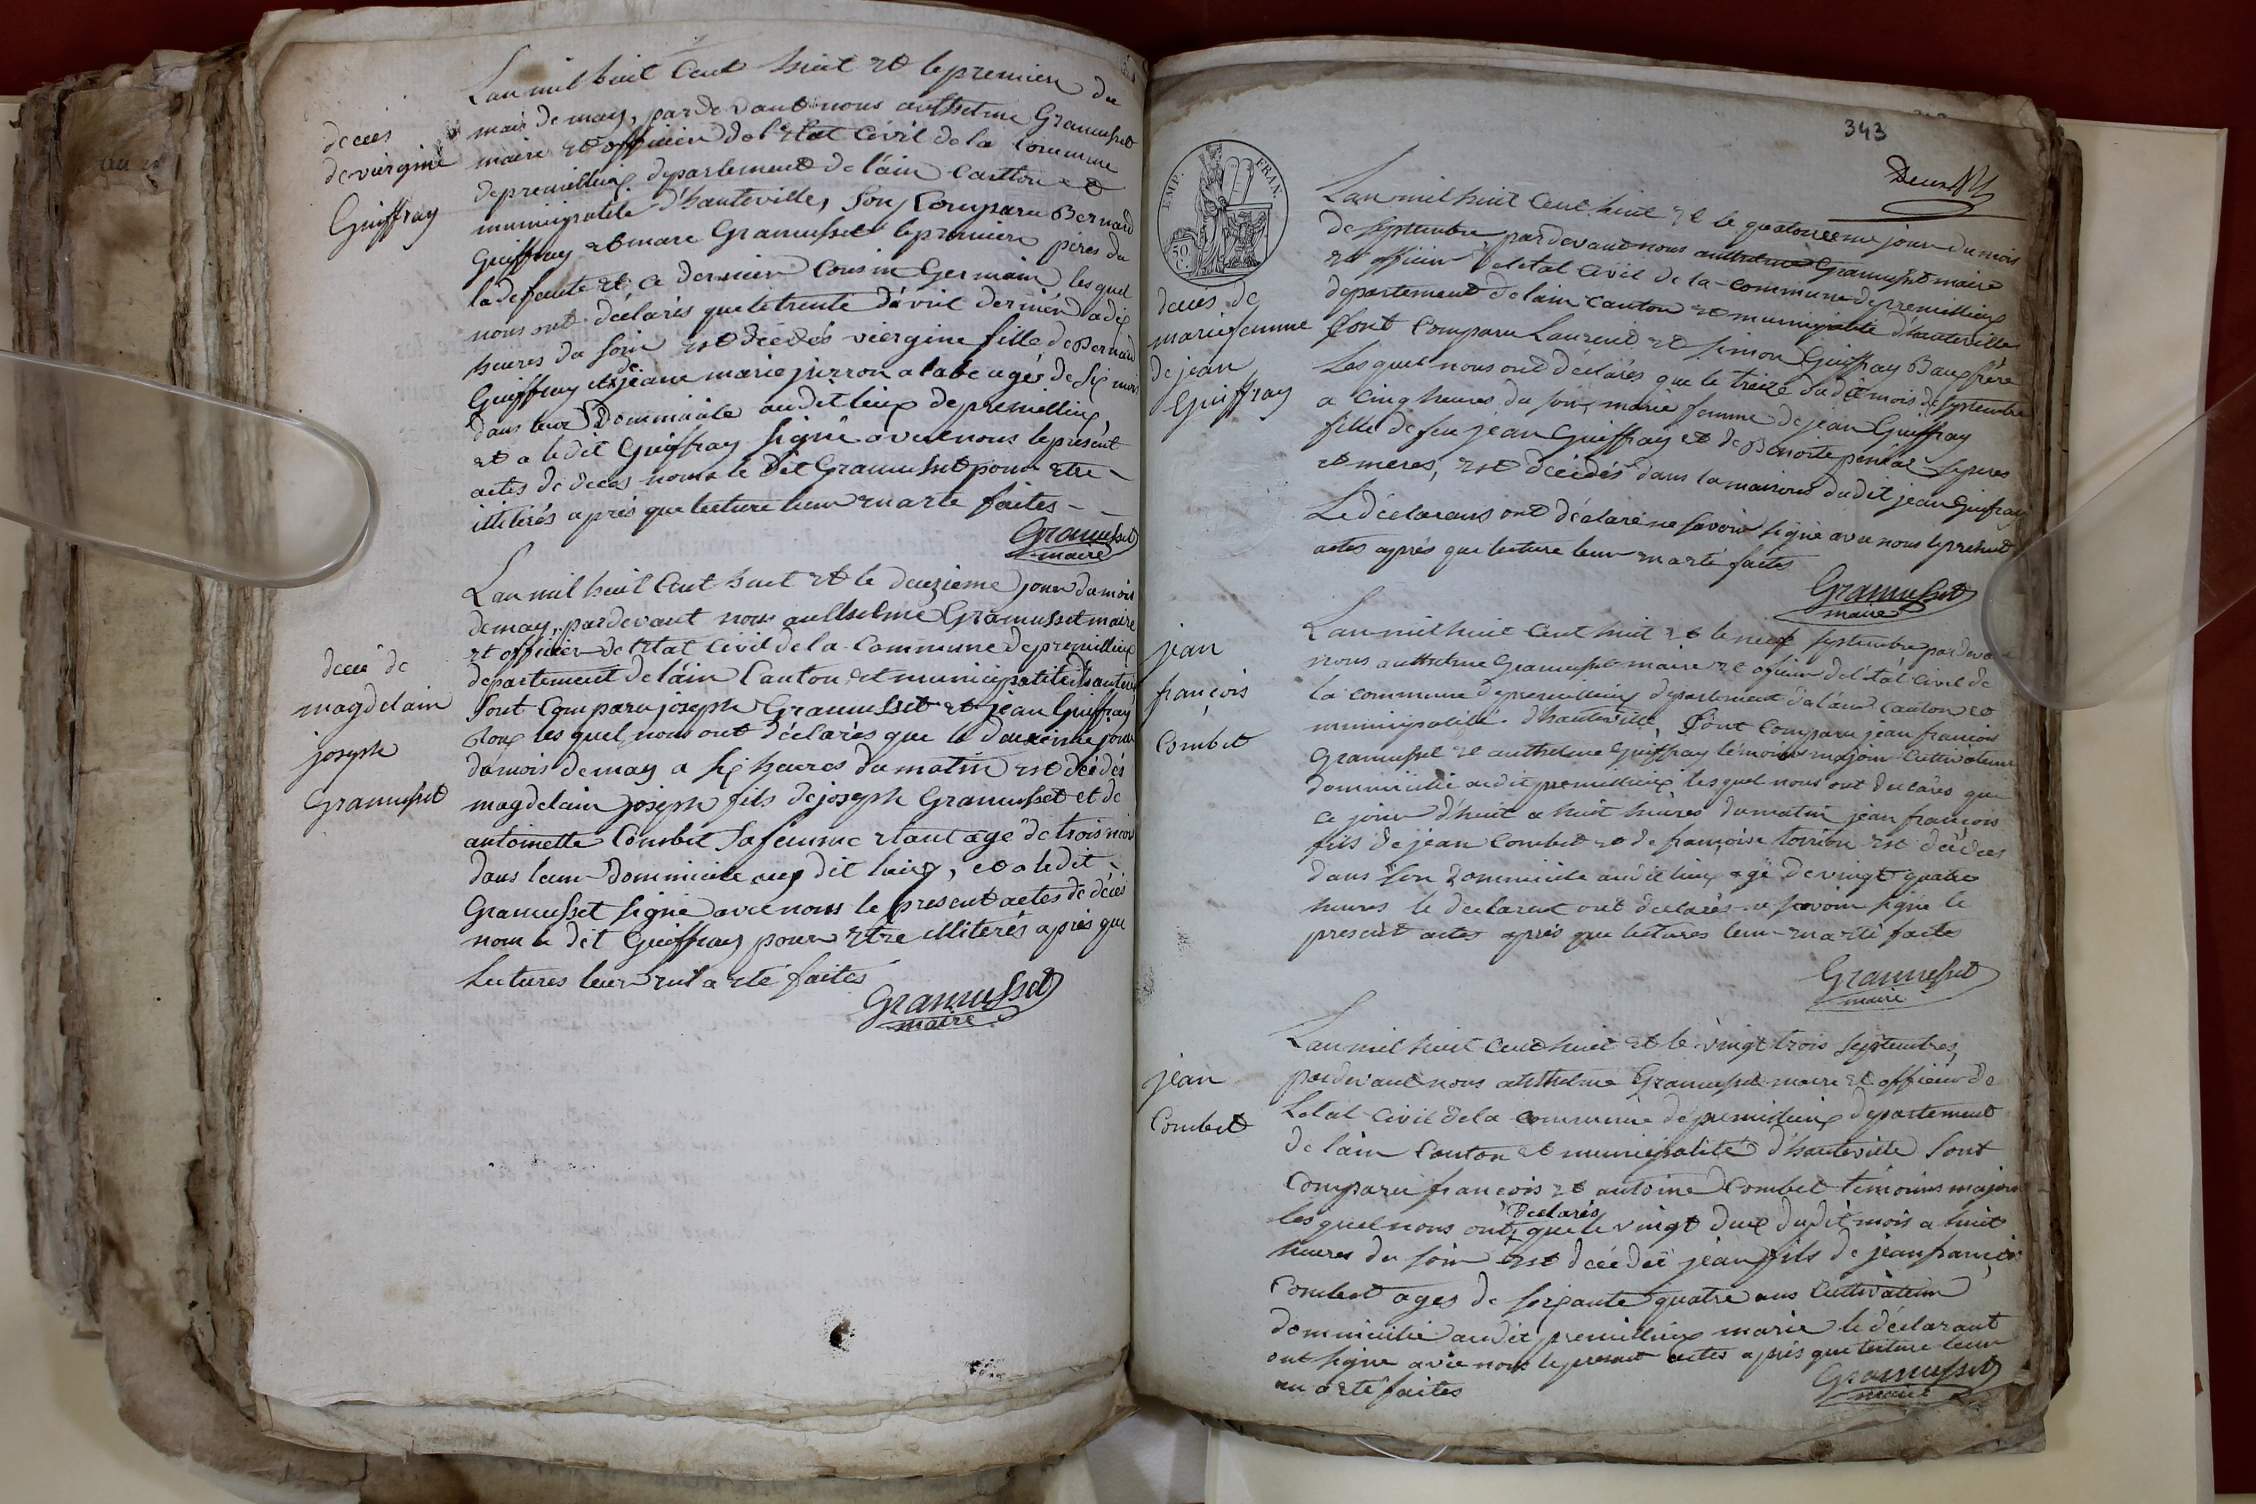 deces
de viergine
Guiffray
Lan mil huit Cent huit et le premier du
mais de may, par devant nous anthelme Gramusset
maire et officier de l'etat Civil de la Commune
de premillieux departement de l'ain Canton et
municipalité d'hauteville, Son Comparu Bernard
Guiffray et marc Gramusset le premier pères du
la defente et ce dernier Cousin Germain les quel
nous ont déclarés que le trente d'avril dernier a dix
heures du soir est décédés viergine fille de Bernard
Guiffray et de jeane marie agés de six mois
dans leur Dommiciale audit lieux de premillieux
et a le dit Guiffray signé avec nous le présent
actes de deces nom le dit Gramusset pour etre
illiterés apres que lecture leur en a ete faites
Gramusset
maire
decé de
magdelain
joseph
Gramusset
Lan mil huit Cent huit et le deuzieme jour du mois
de may, par devant nous anthelme Gramusset maire
et officier de l'etat Civil de la Commune de premillieux
departement de l'ain Canton et municipalité d'hauteville
Sont Comparu joseph Gramusset et jean Guiffray
tous les quel nous ont déclarés que le deuxieme jour
du mois de may a six heures du matin est décédés
magdelain joseph fils de joseph Gramusset et de
antoinette Combet sa femme etant agé de trois mois
dans leur Dommiciale au dit lieux, et a le dit
Gramusset signé avec nous le present actes de décés
nom le dit Guiffray pour etre illiterés apres que
lectures leur en a ete faites
Gramusset
maire
343
Deux
EMP. FRAN.
50 C.
deces de
marie femme
de jean
Guiffray
Lan mil huit Cent huit et le quatorzeme jour du mois
de septembre, par devant nous anthelme Gramusset maire
et officier de letat Civil de la commune de premillieux
departement de lain canton et municipalité d'hauteville
Sont Comparu Laurent et simon Guiffray Baux frère
Les quel nous ont déclarés que le treize du dit mois de septembre
a cinq heures du soir, marie femme de jean Guiffray
fille de feu jean Guiffray et de Benoite ses peres
et meres, est décédés dans la maisons du dit jean Guiffray
Le déclarans ont déclaré ne savoir signé avec nous le present
actes après que lecture leur en a eté faites
Gramusset
maire
jean
françois
Combet
Lan mil huit Cent huit et le neuf septembre par devant
nous anthelme Gramusset maire et oficier de l'état Civil de
la commune de premillieux departement de l'ain Canton et
municipalité d'hauteville, Sont Comparu jean francois
Gramusset et anthelme Guiffray témoins majour Cultivateur
dommicilié audit premillieux les quel nous ont declarés que
ce jour d'huit a huit heures du matin jean françois
fils de jean Combet et de françoise est décédés
dans son Dommicile au dit lieux agé de vingt quatre
heures le declarent ont declarés ne savoir signé le
present actes après que lectures leur en a eté faites
Gramusset
maire
jean
Combet
Lan mil huit Cent huit et le vingt trois septembres,
par devant nous anthelme Gramusset maire et officier de
Letat Civil de la commune de premillieux departement
de lain Canton et municipalité d'hauteville Sont
Comparu françois et antoine Combet témoins majour
les quel nous ont declarés que le vingt deux du dit mois a huit
heures du soir est décédé jean fils de jean françois
Combet ages de soixante quatre ans Cultivateur
dommicilié audit premillieux marié le déclarant
ont signé avec nous le present actes après que lecture leur
en a eté faites
Gramusset
maire